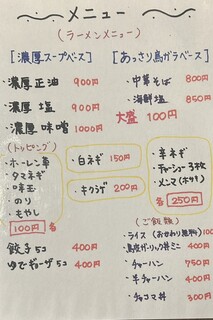 メニュー
(ラーメンメニュー)
[濃厚スープベース]
・濃厚正油 900円
・濃厚 塩 900円
・濃厚味噌 1000円
[あっさり鳥ガラベース]
・中華そば 800円
・海鮮塩 850円
大盛 100円
(トッピング)
・ホーレン草
・タマネギ
・味玉
・のり
・もやし
100円 各
・白ネギ 150円
・キクラゲ 200円
・辛ネギ
・チャーシュー3枚
・メンマ(ホサキ)
各 250円
餃子5コ 400円
ゆでギョーザ5コ 400円
(ご飯類)
・ライス(おかわり無料)
・鳥ガーリックの丼 400円
・チャーハン 750円
・半チャーハン 400円
・チャコマ丼 300円